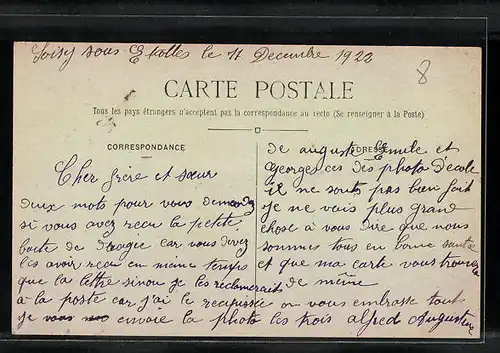 Soisy sous Etiolles le 11 Decembre 1922
8
CARTE POSTALE
Tous les pays étrangers n'acceptent pas la correspondance au recto (Se renseigner à la Poste)
CORRESPONDANCE
ADRESSE
Cher frère et sœur
deux mots pour vous demandez
si vous avez recu la petite
boete de dragee car vous devez
les avoir recu en meme temps
que la lettre sinon je les réclamerait
à la poste car j'ai le recepissée
je vous envoie la photo les trois
de auguste Emile et
Georges ces des photo d'ecole
il ne sonts pas bien fait
je ne vais plus grand
chose a vous dire que nous
sommes tous en bonne santé
et que ma carte vous trouvera
de même
on vous embrasse tous
alfred Augustine